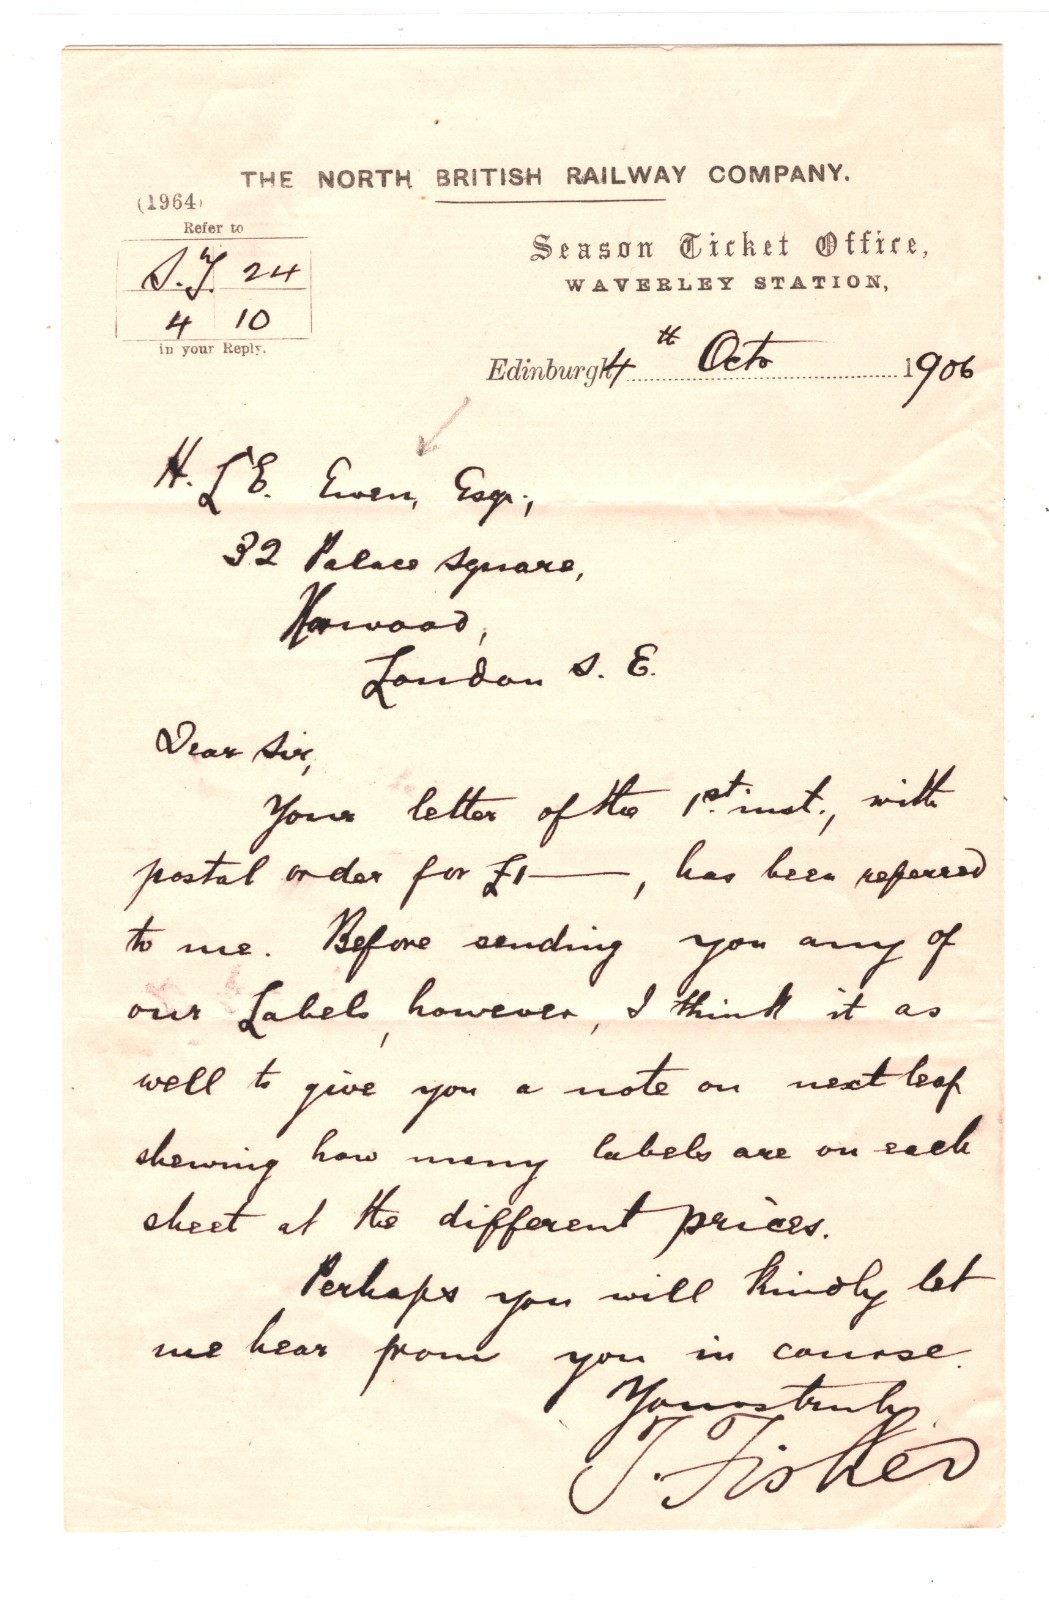 THE NORTH BRITISH RAILWAY COMPANY.
(1964)
Refer to
S.T. 24
4 10
in your Reply.
Season Ticket Office,
WAVERLEY STATION,
Edinburgh 4th Octo 1906
H. L'E. Ewen, Esqr.,
32 Palace Square,
Norwood,
London S. E.
Dear Sir,
Your letter of the 1st. inst., with
postal order for £1—, has been referred
to me. Before sending you any of
our Labels, however, I think it as
well to give you a note on next leaf
shewing how many labels are on each
sheet at the different prices.
Perhaps you will kindly let
me hear from you in course.
Yours truly
J. Fisher